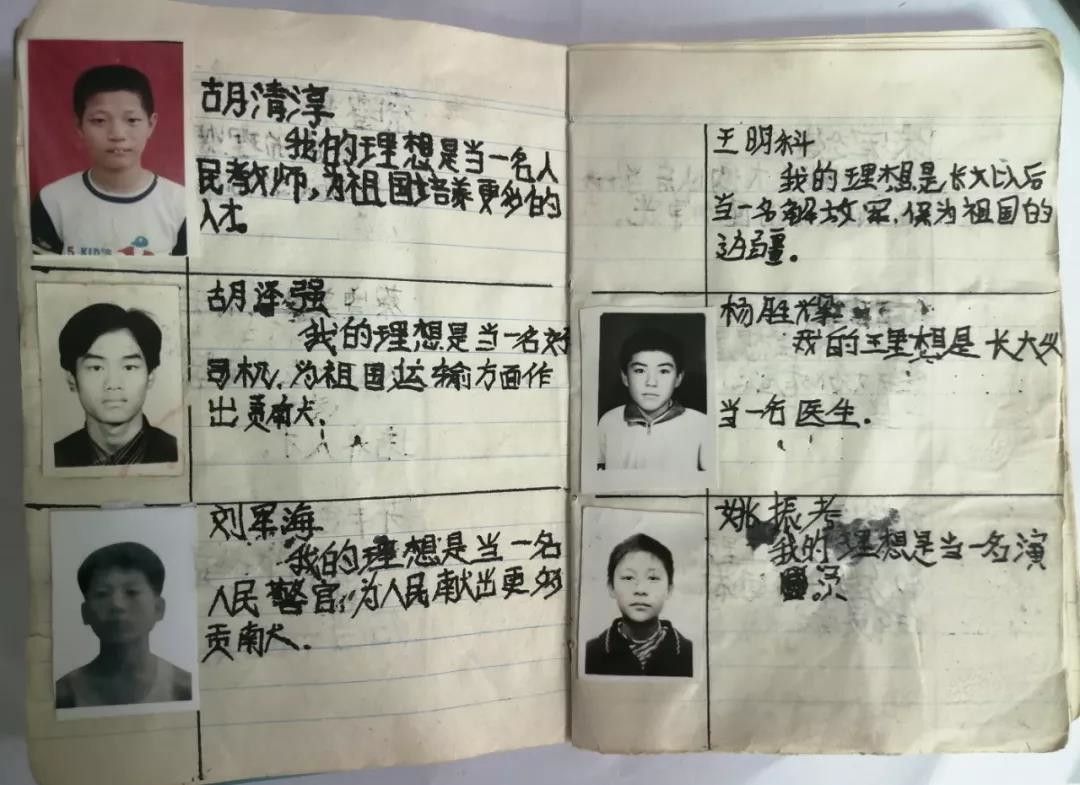 胡清淳
我的理想是当一名人
民教师,为祖国培养更多的
人才。
5 KIDS
胡泽强
我的理想是当一名好
司机,为祖国运输方面作
出贡献。
刘军海
我的理想是当一名
人民警官,为人民献出更多
贡献.
王明科
我的理想是长大以后
当一名解放军,保为祖国的
边疆。
杨胜辉
我的理想是长大以
当一名医生.
姚振考
我的理想是当一名演